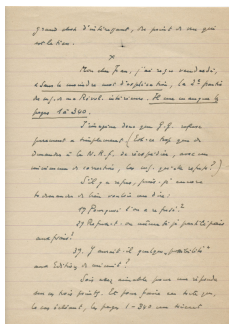 grand choix d'intrigant, du point de vue qui
est le tien.
*
Mon cher Jean, j'ai reçu vendredi,
sans le moindre mot d'explication, la 2e partie
de ms. de ma Révol. intérieure. Il me manque les
pages 1 à 240.
J'imagine donc que G.G. refuse
purement et simplement (Est-ce trop que de
demander à la N.R.F. de réexpédier, avec un
minimum de correction, les ms. qu'elle refuse ?)
S'il y a refus, puis-je encore
te demander de bien vouloir me dire :
1°/ Pourquoi l'on a refusé ?
2°/ Refusent-on même si je participais
aux frais ?
3°/. Y aurait-il quelque "possibilité"
aux Editions de minuit ?
Sois assez aimable pour me répondre
sur ces trois points. Et pour faire en sorte que,
le cas échéant, les pages 1-240 me soient